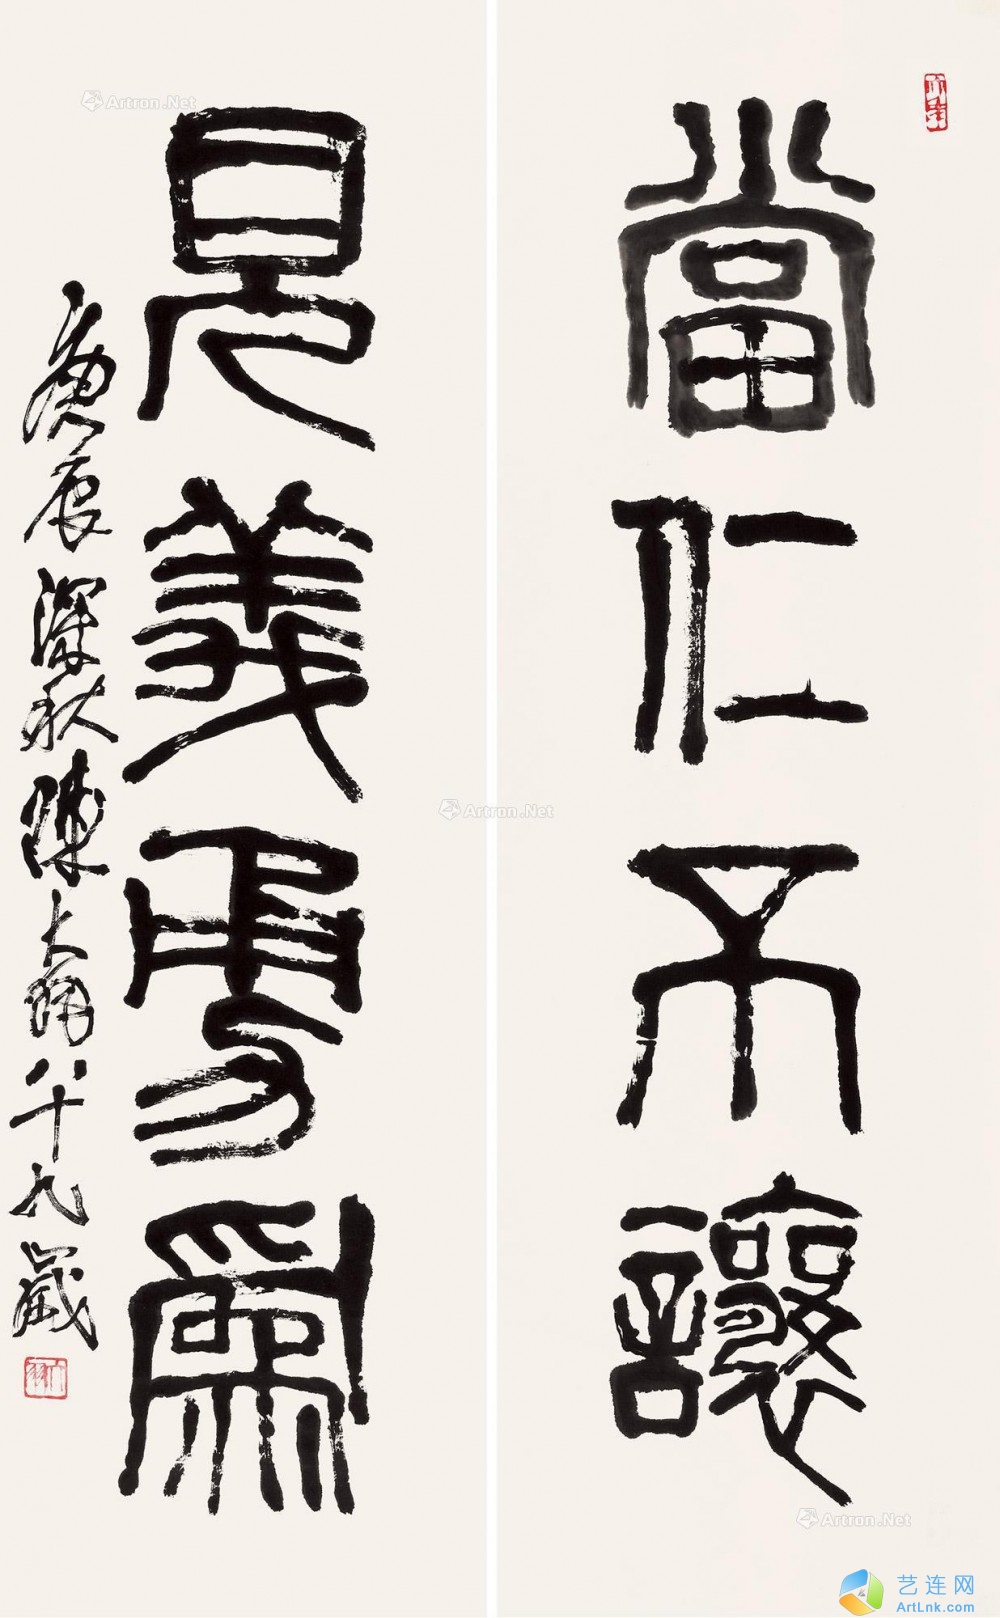 當仁不讓
見義勇為
庚辰深秋陳大羽八十九歲
大羽
Artron.Net
Artron.Net
Artron.Net
艺连网
ArtLnk.com